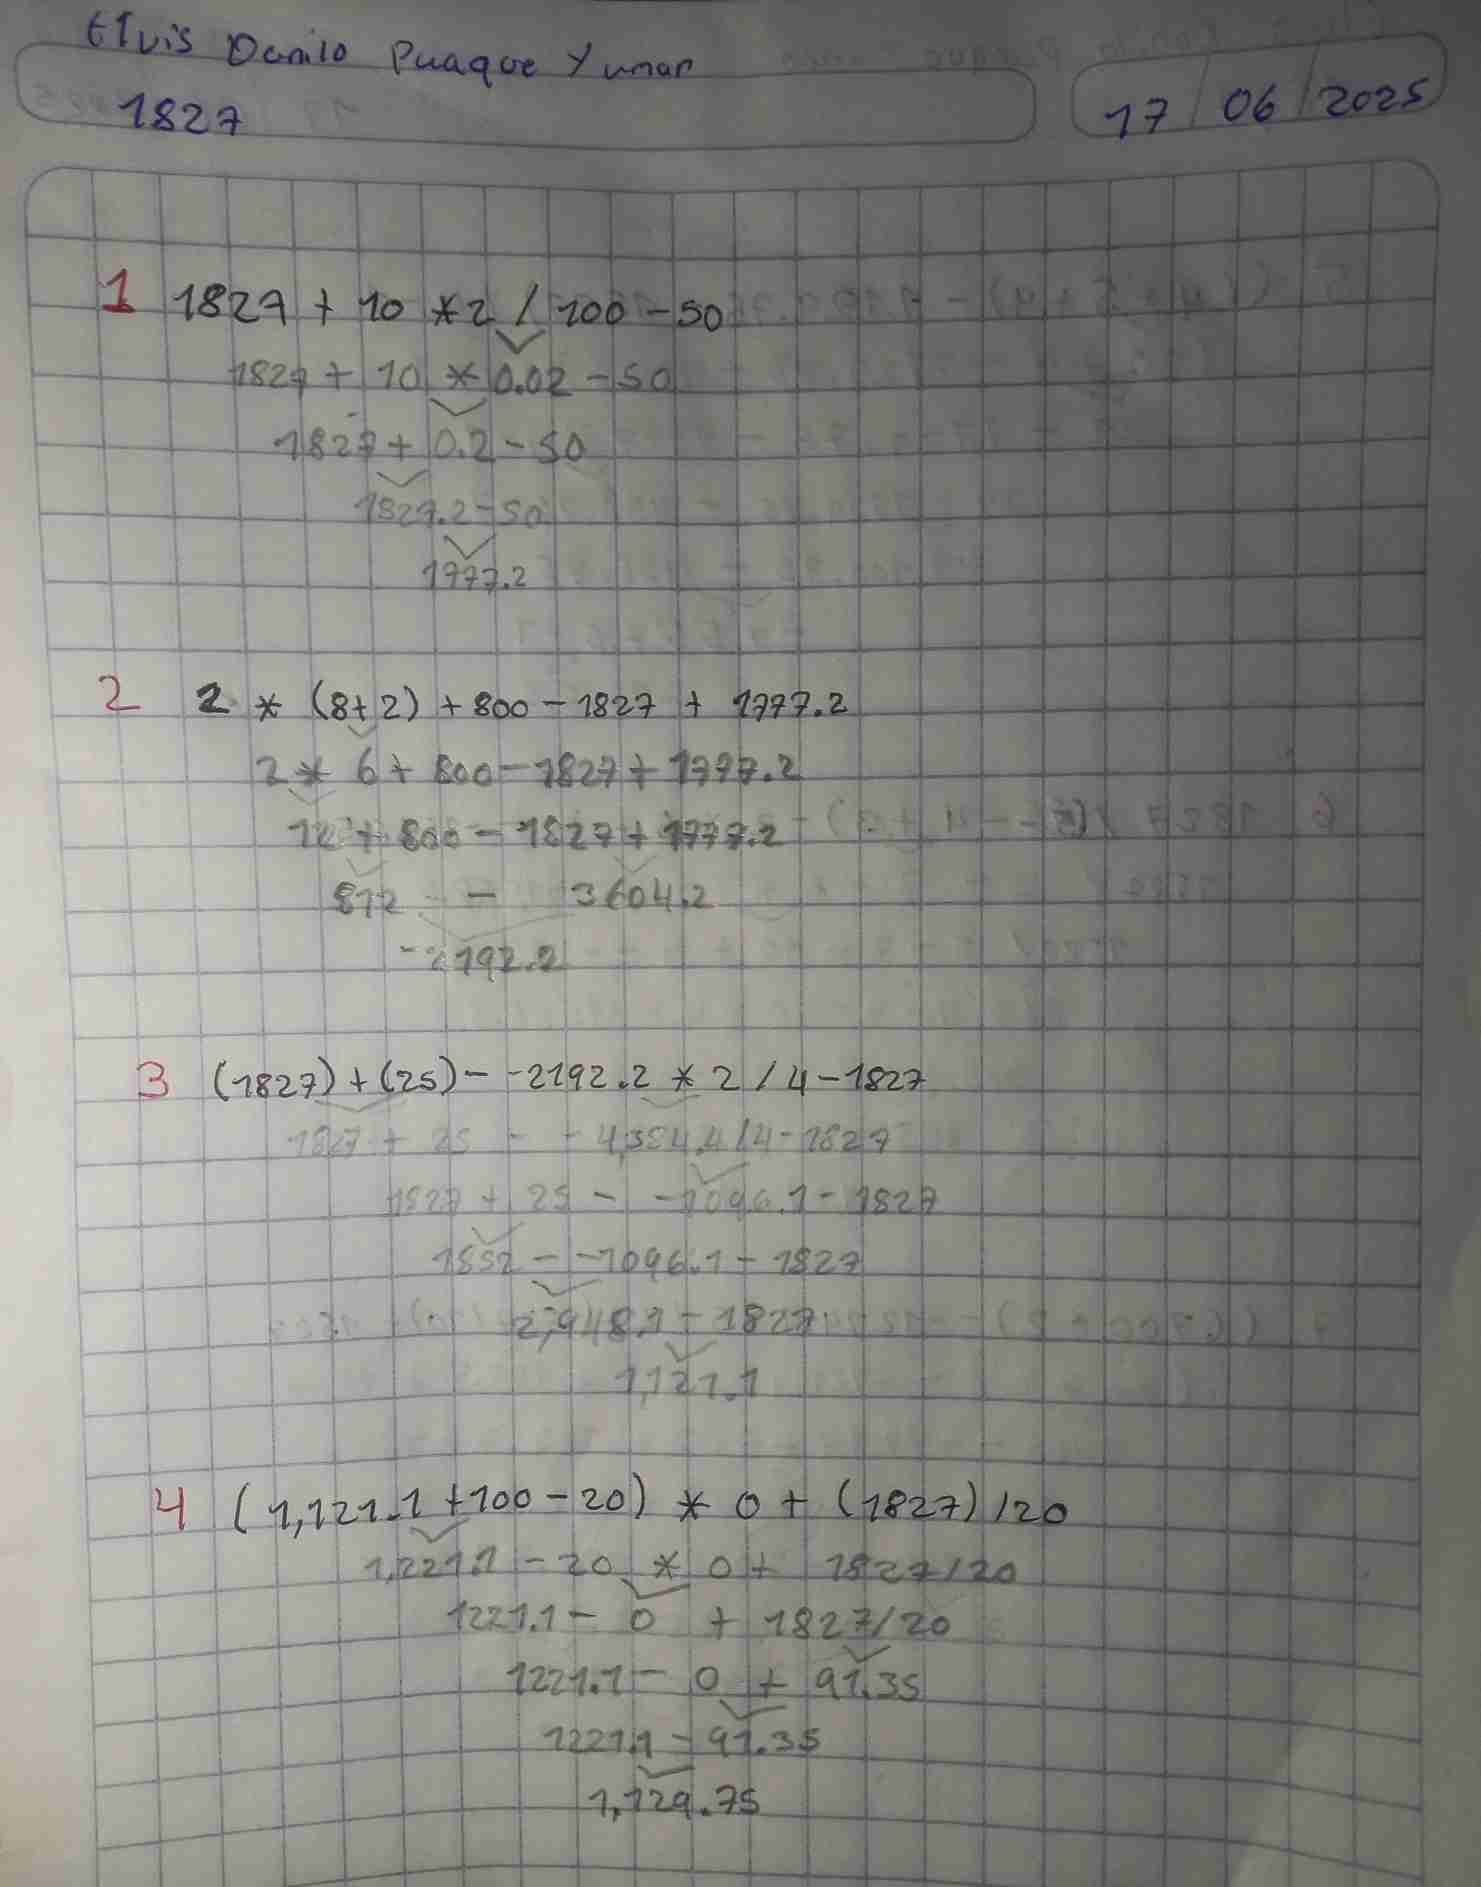 Elvis Danilo Puaque Yuman
1827
17 / 06 / 2025
1 1827 + 10 * 2 / 100 - 50
1827 + 10 * 0.02 - 50
1827 + 0.2 - 50
1827.2 - 50
1777.2
2 2 * (8+2) + 800 - 1827 + 1777.2
2 * 6 + 800 - 1827 + 1777.2
12 + 800 - 1827 + 1777.2
812 - 3604.2
-2192.2
3 (1827) + (25) - -2192.2 * 2 / 4 - 1827
1827 + 25 - - 4,384.4 / 4 - 1827
1827 + 25 - -1096.1 - 1827
1852 - -1096.1 - 1827
2,948.1 - 1827
1,121.1
4 (1,121.1 + 100 - 20) * 0 + (1827) / 20
1,221.1 - 20 * 0 + 1827 / 20
1221.1 - 0 + 1827 / 20
1221.1 - 0 + 91.35
1221.1 - 91.35
1,129.75